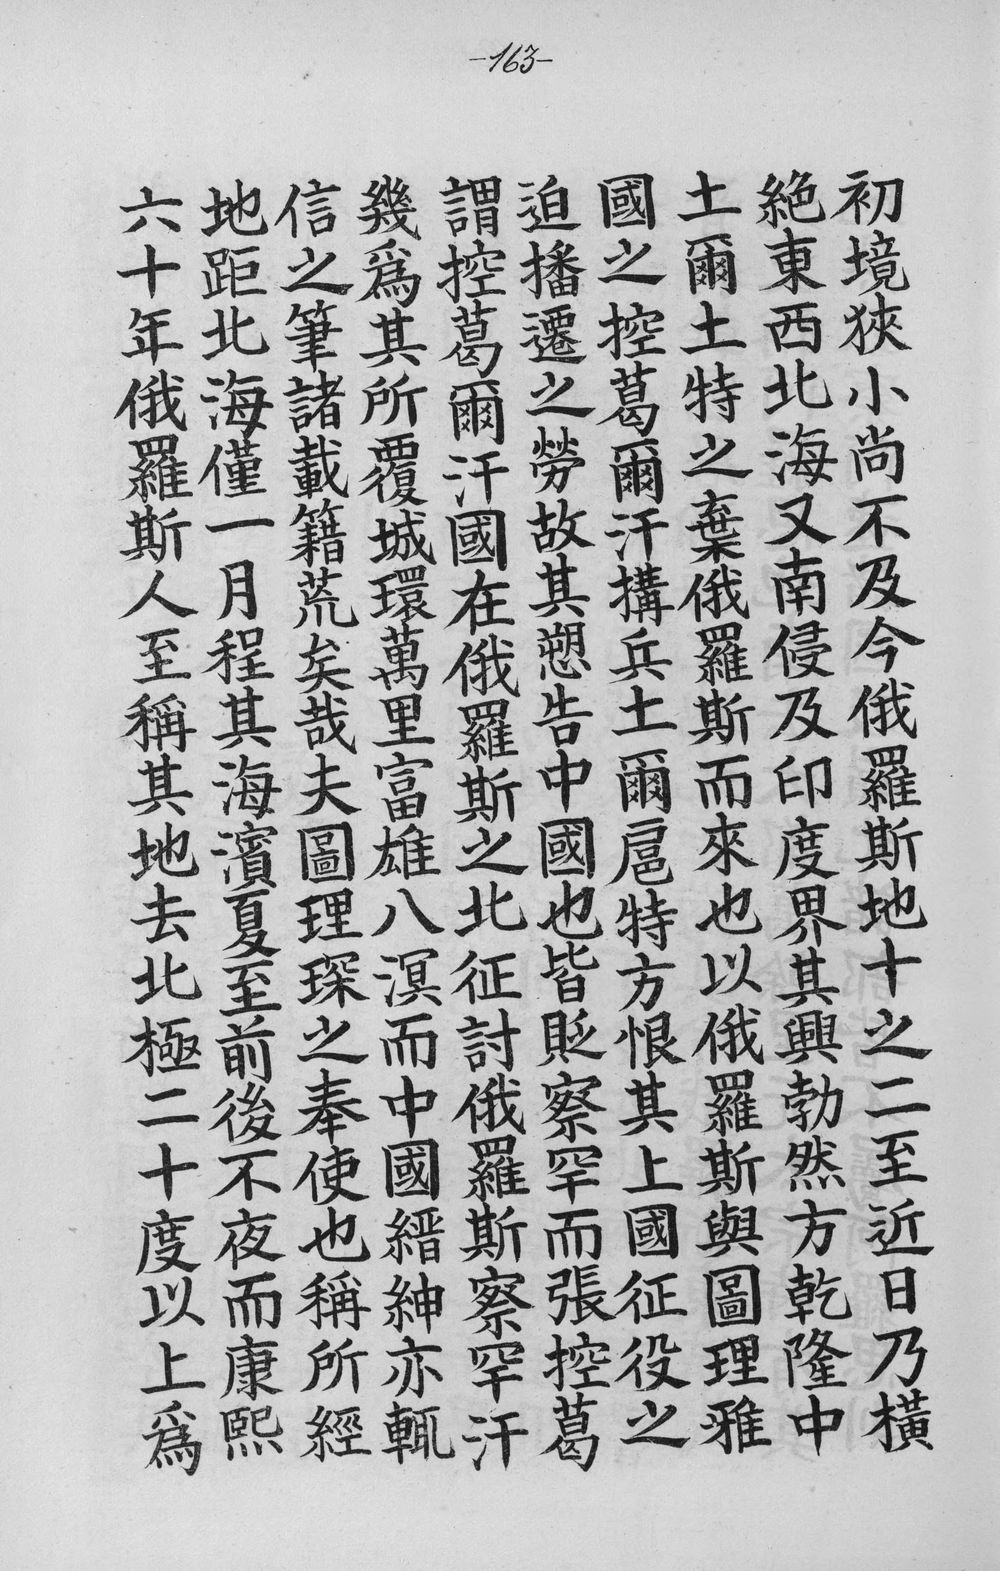 -163-
初境狹小尚不及今俄羅斯地十之二至近日乃橫
絕東西北海又南侵及印度界其興勃然方乾隆中
土爾土特之棄俄羅斯而來也以俄羅斯與圖理雅
國之控葛爾汗搆兵土爾扈特方恨其上國征役之
迫播遷之勞故其愬告中國也皆貶察罕而張控葛
謂控葛爾汗國在俄羅斯之北征討俄羅斯察罕汗
幾爲其所覆城環萬里富雄八溟而中國縉紳亦輒
信之筆諸載籍荒矣哉夫圖理琛之奉使也稱所經
地距北海僅一月程其海濱夏至前後不夜而康熙
六十年俄羅斯人至稱其地去北極二十度以上爲